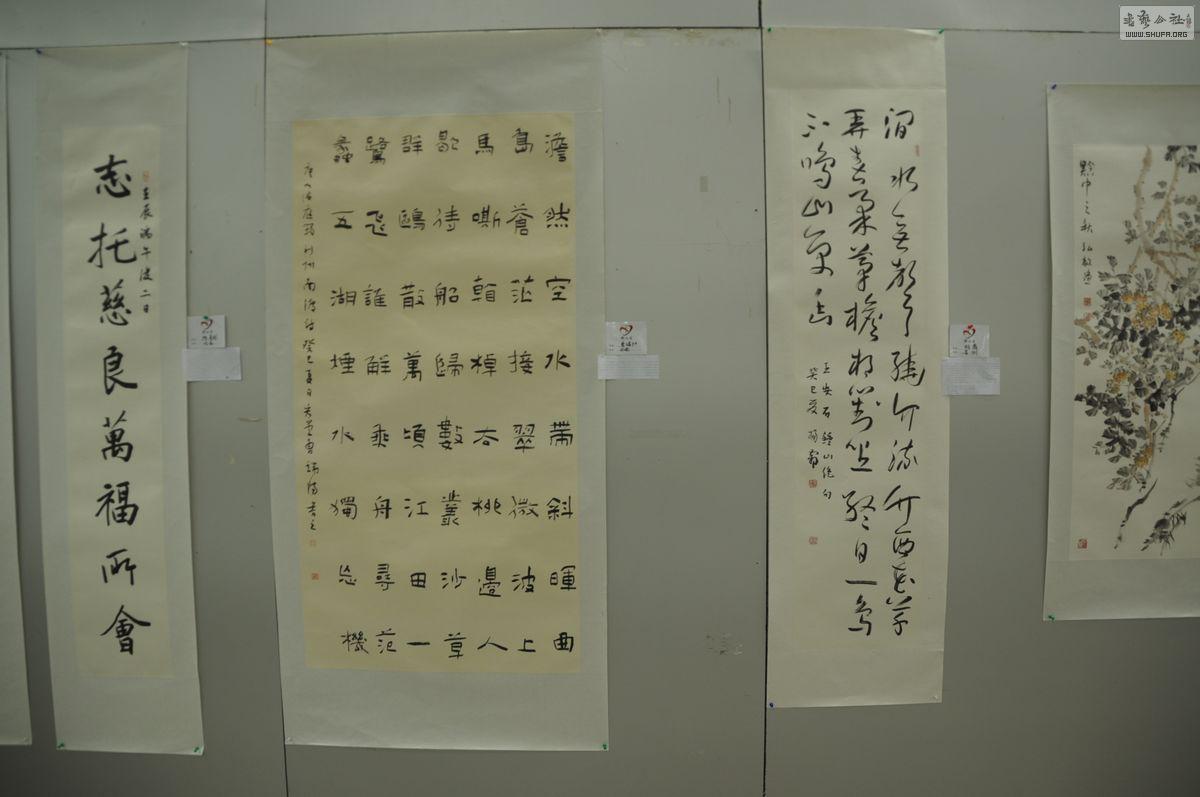 書藝公社
WWW.SHUFA.ORG
黔中之秋
澗水無聲繞竹流竹西花草
弄春柔茅檐相對坐終日一鳥
不鳴山更幽
王安石鐘山絕句
癸巳夏
澹然空水帶斜暉曲
島蒼茫接翠微波上
馬嘶棹去桃邊人
歇待船歸數叢沙草
群鷗散萬頃江田一
鷺飛誰解乘舟尋范
蠡五湖煙水獨忘機
唐人溫庭筠利州南渡詩癸巳夏日
壬辰端午後二日
志托慈良萬福所會